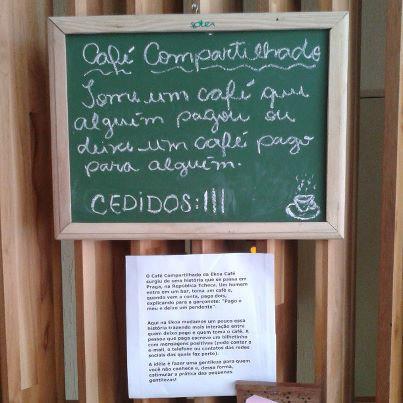 soter
Café Compartilhado
Tome um café que
alguém pagou ou
deixe um café pago
para alguém.
CEDIDOS: |||
O Café Compartilhado da Ekoa Café
surgiu de uma história que se passa em
Praga, na República Tcheca. Um homem
entra em um bar, toma um café e,
quando vem a conta, paga dois,
explicando para a garçonete: "Pago o
meu e deixo um pendente".
Aqui na Ekoa mudamos um pouco essa
história trazendo mais interação entre
quem deixa pago e quem toma o café. A
pessoa que paga escreve um bilhetinho
com mensagens positivas (pode conter o
e-mail, o telefone ou contatos das redes
sociais das quais faz parte).
A idéia é fazer uma gentileza para quem
você não conhece e, dessa forma,
estimular a prática das pequenas
gentilezas!